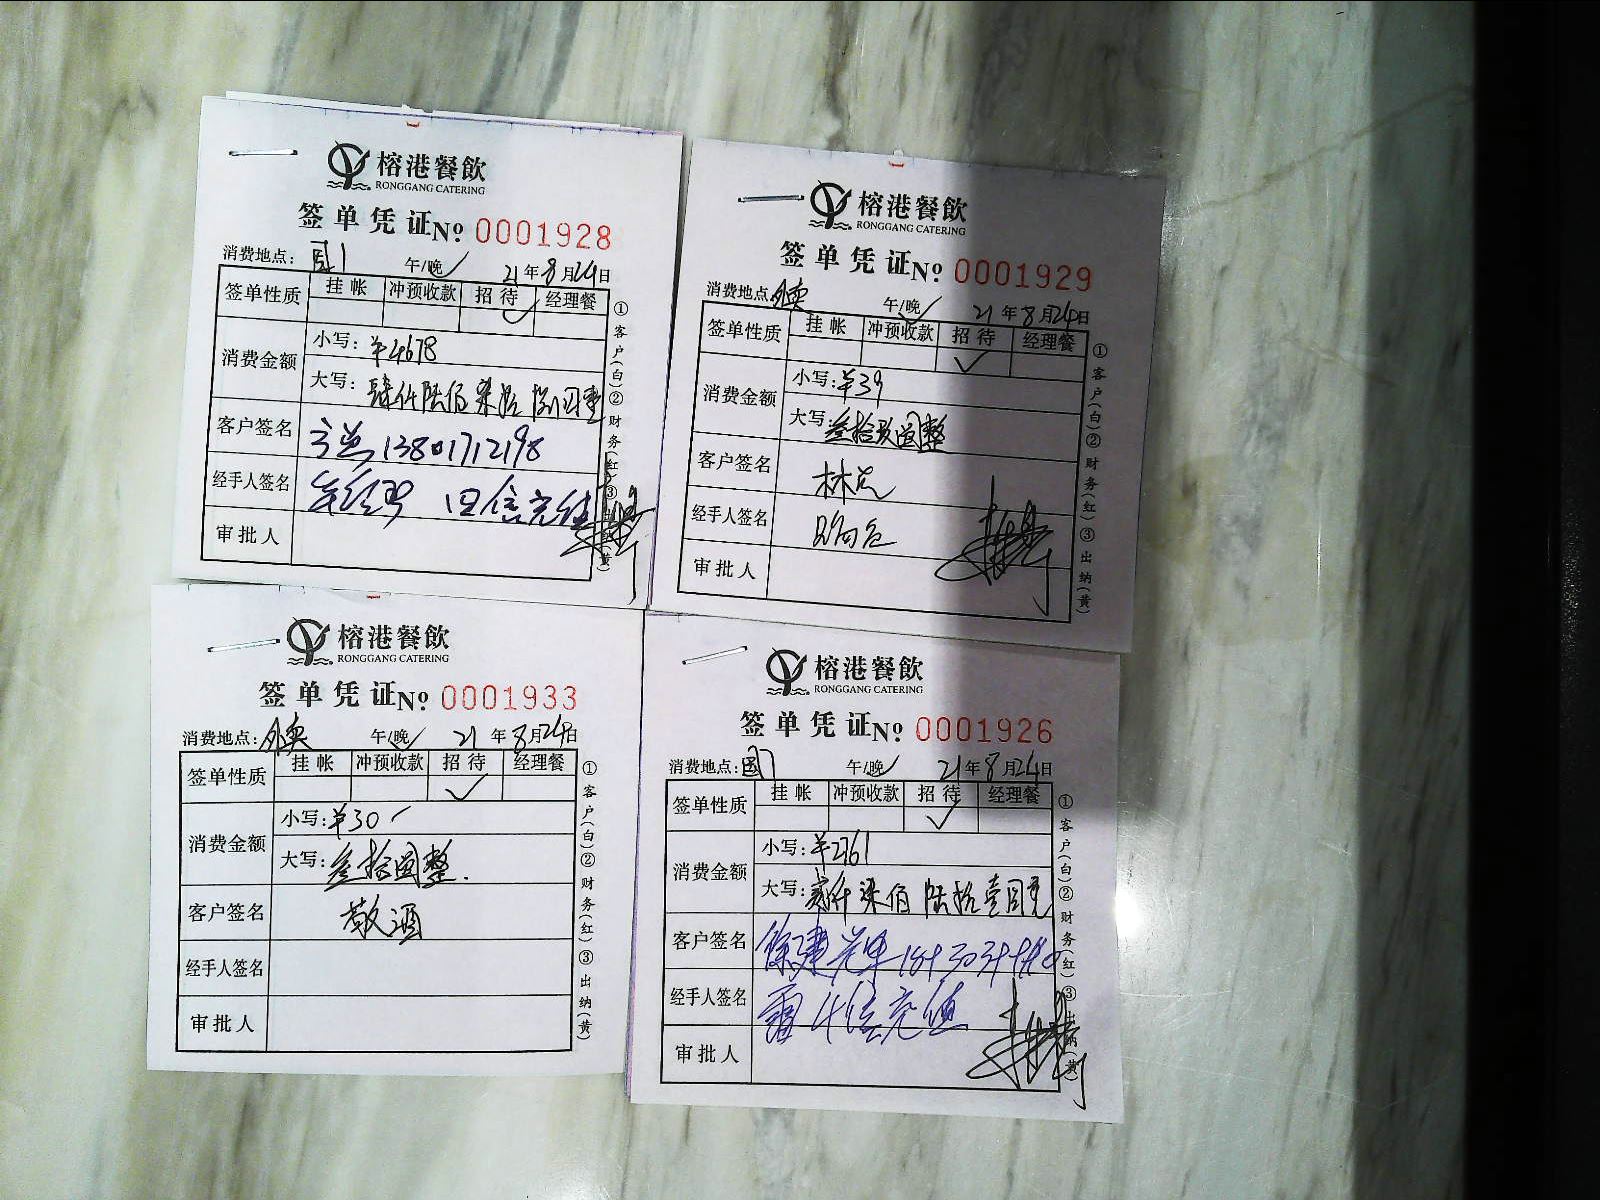 榕港餐飲
RONGGANG CATERING
签单凭证№ 0001928
消费地点： 午/晚 21年8月24日
签单性质 挂帐 冲预收款 招待 经理餐
消费金额 小写：¥4678
大写：肆仟陆佰柒拾捌圆整
客户签名 13801712198
经手人签名
审批人
①客户(白)②财务(红)③出纳(黄)
榕港餐飲
RONGGANG CATERING
签单凭证№ 0001929
消费地点：外卖 午/晚 21年8月24日
签单性质 挂帐 冲预收款 招待 经理餐
消费金额 小写：¥39
大写：叁拾玖圆整
客户签名
经手人签名
审批人
①客户(白)②财务(红)③出纳(黄)
榕港餐飲
RONGGANG CATERING
签单凭证№ 0001933
消费地点：外卖 午/晚 21年8月24日
签单性质 挂帐 冲预收款 招待 经理餐
消费金额 小写：¥30
大写：叁拾圆整.
客户签名 敬酒
经手人签名
审批人
①客户(白)②财务(红)③出纳(黄)
榕港餐飲
RONGGANG CATERING
签单凭证№ 0001926
消费地点： 午/晚 21年8月24日
签单性质 挂帐 冲预收款 招待 经理餐
消费金额 小写：¥2761
大写：贰仟柒佰陆拾壹圆整
客户签名
经手人签名
审批人
①客户(白)②财务(红)③出纳(黄)